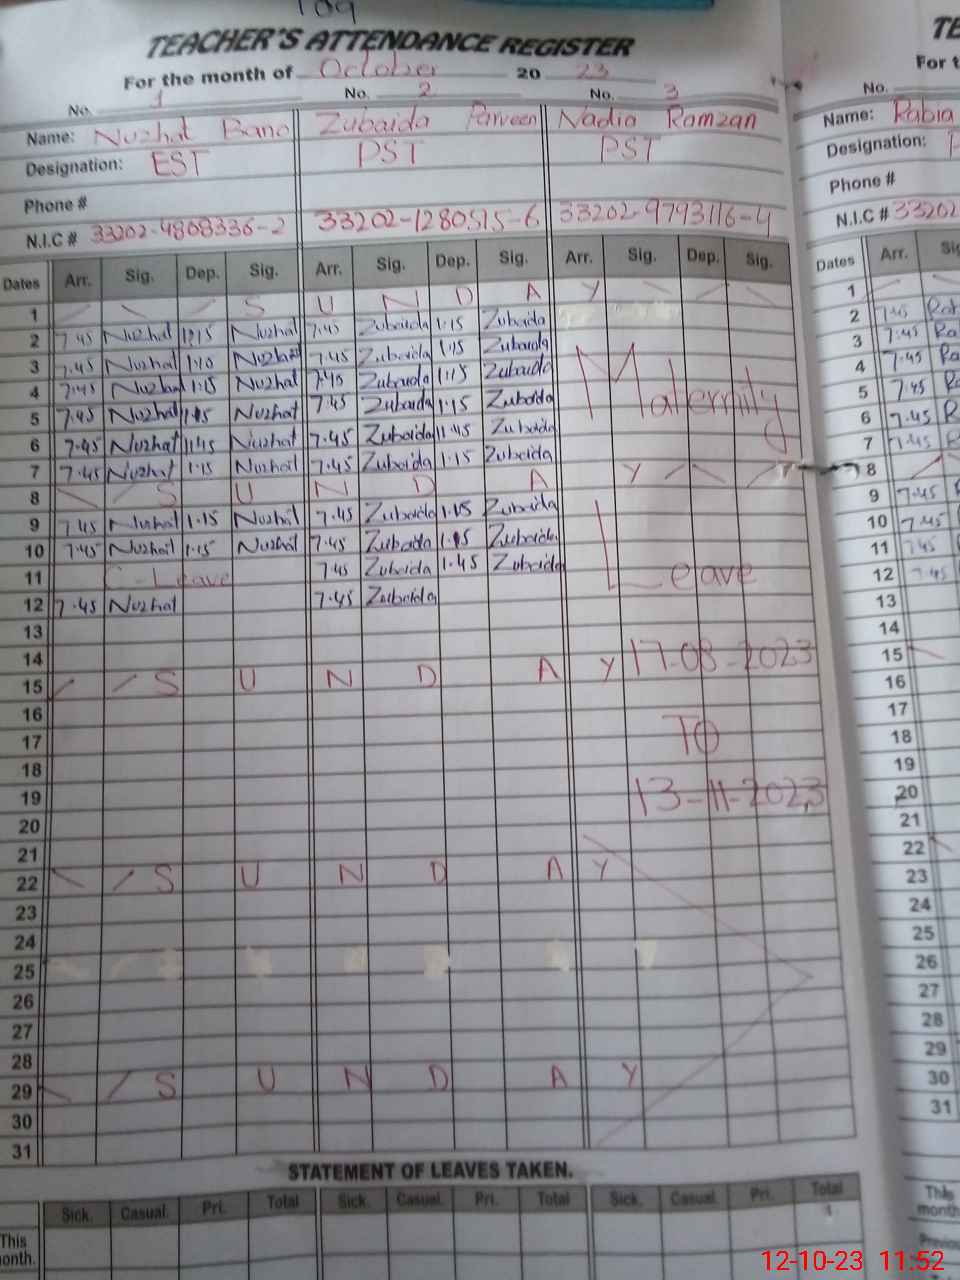 109
TEACHER'S ATTENDANCE REGISTER
For the month of October 20 23
No. 1 No. 2 No. 3
Name: Nuzhat Bano Zubaida Parveen Nadia Ramzan
Designation: EST PST PST
Phone #
N.I.C # 33202-4808336-2 33202-1280515-6 33202-9793116-4
Dates Arr. Sig. Dep. Sig. Arr. Sig. Dep. Sig. Arr. Sig. Dep. Sig.
1 S U N D A Y
2 7.45 Nuzhat 1:15 Nuzhat 7.45 Zubaida 1.15 Zubaida
3 7.45 Nuzhat 1:10 Nuzhat 7.45 Zubaida 1.15 Zubaida
4 7.45 Nuzhat 1:15 Nuzhat 7.45 Zubaida 1.15 Zubaida Maternity
5 7.45 Nuzhat Nuzhat 7.45 Zubaida 1.15 Zubaida
6 7.45 Nuzhat 11.45 Nuzhat 7.45 Zubaida 11.45 Zubaida
7 7.45 Nuzhat 1.15 Nuzhat 7.45 Zubaida 1.15 Zubaida
8 S U N D A Y
9 7.45 Nuzhat 1.15 Nuzhat 7.45 Zubaida 1.15 Zubaida
10 7.45 Nuzhat 1.15 Nuzhat 7.45 Zubaida 1.15 Zubaida
11 C-Leave 7.45 Zubaida 1.45 Zubaida Leave
12 7.45 Nuzhat 7.45 Zubaida
13
14 17-08-2023
15 S U N D A Y
16
17 TO
18
19 13-11-2023
20
21
22 S U N D A Y
23
24
25
26
27
28
29 S U N D A Y
30
31
STATEMENT OF LEAVES TAKEN.
Sick. Casual. Pri. Total Sick. Casual. Pri. Total Sick. Casual. Pri. Total
This month.
TE
For t
No.
Name: Rabia
Designation: P
Phone #
N.I.C # 33202
Dates Arr. Sig
1
2 7.45
3 7.45 Ra
4 7.45 Ra
5 7.45 Ra
6 7.45 R
7 7.45 R
8
9 7.45 R
10 7.45
11 7.45
12 7.45
13
14
15
16
17
18
19
20
21
22
23
24
25
26
27
28
29
30
31
This month
Previou
12-10-23 11:52